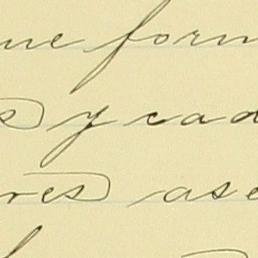 ne form
s y cad
res ase